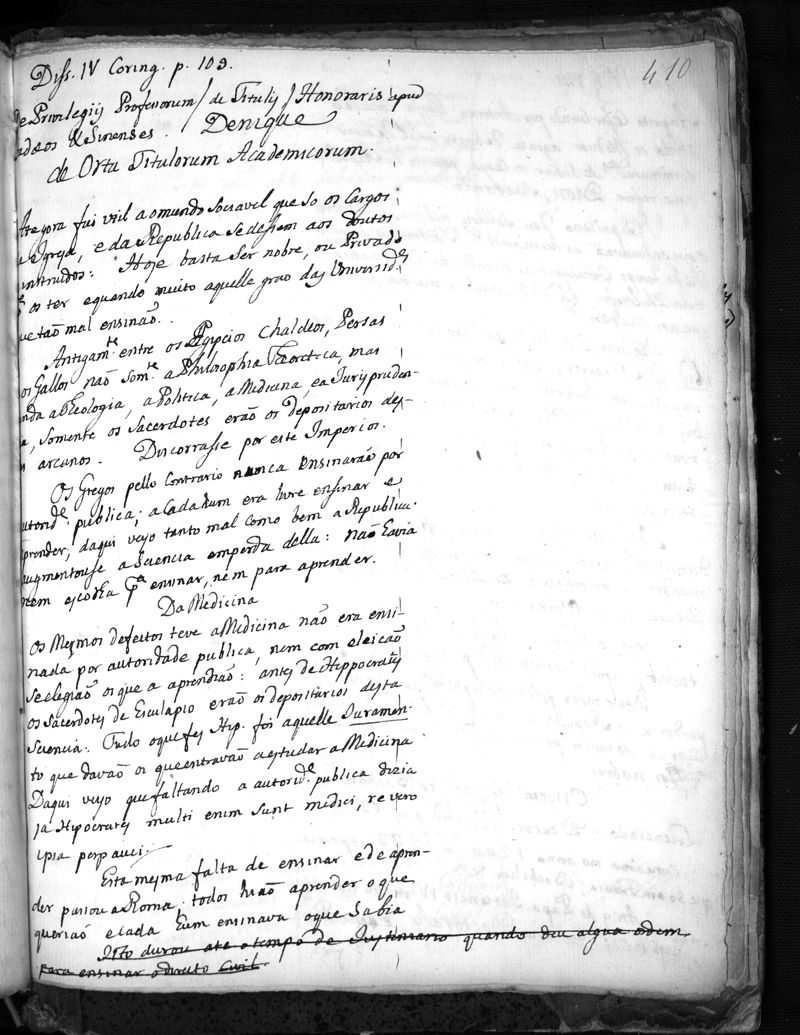 410
Diss. IV Coring. p. 103.
de Privilegijs Professorum / de Titulis / Honoraris apud
Sinenses. Denique
de Ortu Titulorum Academicorum.
Ategora fui util ao mundo sociavel que so os Cargos
a Igreja, e da Republica se dessem aos doutos
instruidos: Hoje basta ser nobre, ou Privado
os ter e quando muito aquelle grao das Universid.es
que tão mal ensinão.
Antigam.te entre os Egipcios Chaldeos, Persas
os Gallos não som.te a Philosophia Theoretica, mas
inda a Theologia, a Politica, a Medicina, e a Jurispruden-
a, somente os Sacerdotes erão os depositarios des-
s arcanos. Discorrasse por este Imperios.
Os Gregos pello Contrario nunca ensinarão por
autorid.e publica; a Cada hum era livre ensinar e
prender, daqui vejo tanto mal como bem a Republica.
augmentouse a Sciencia emperda della: não havia
nem escolha p.a ensinar, nem para aprender.
Da Medicina
Os Mesmos defeitos teve a Medicina não era ensi-
nada por autoridade publica, nem com eleicão
se elegião os que a aprendião: antes de Hippocrates
os sacerdotes de Esculapio erão os depositarios desta
Sciencia: Tudo o que fes Hip. foi aquelle Juramen-
to que davão os que entravão a estudar a Medicina
Daqui vejo que faltando a autorid.e publica dizia
ja Hipocrates multi enim sunt medici, re vero
ipsa perpauci.
Esta mesma falta de ensinar e de apren-
der passou a Roma: todos hião aprender o que
querião e cada hum ensinava o que sabia
Isto durou ate o tempo de Justiniano quando deu algua odem
para ensinar o direito Civil.